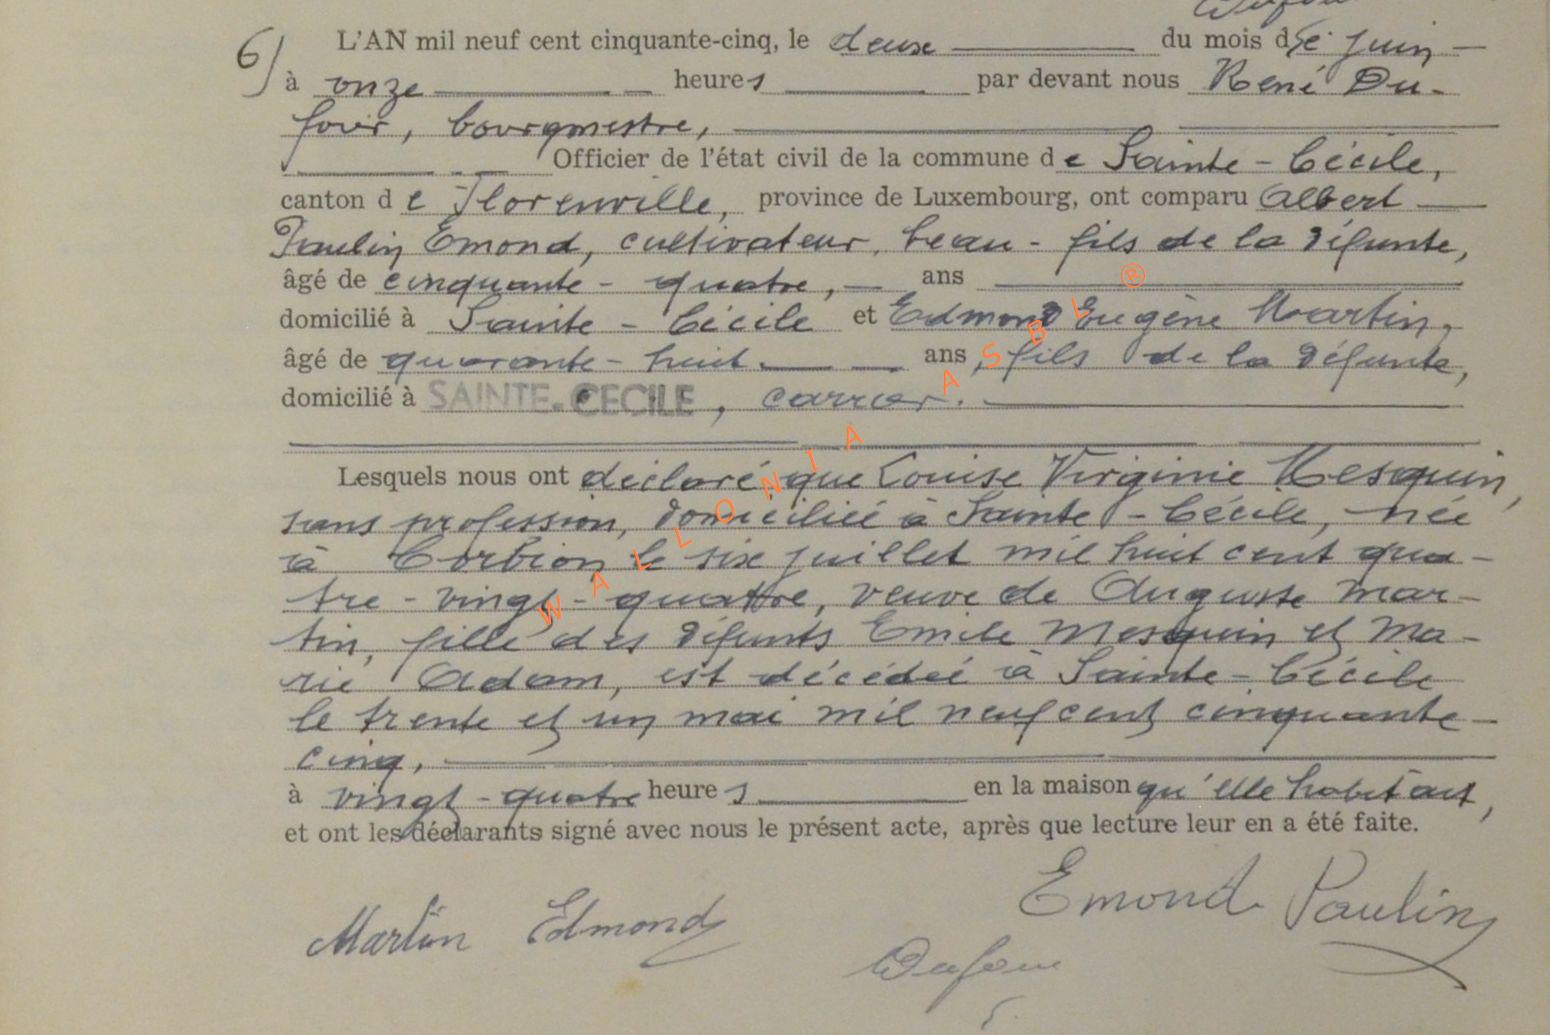 6) L'AN mil neuf cent cinquante-cinq, le deux du mois de juin
à onze heures par devant nous René Du-
four, bourgmestre,
Officier de l'état civil de la commune de Sainte-Cécile,
canton de Florenville, province de Luxembourg, ont comparu Albert
Paulin Emond, cultivateur, beau-fils de la défunte,
âgé de cinquante-quatre, ans
domicilié à Sainte-Cécile et Edmond Eugène Martin,
âgé de quarante-huit ans, fils de la défunte,
domicilié à SAINTE-CECILE, carrier.
Lesquels nous ont déclaré que Louise Virginie Mesquin,
sans profession, domiciliée à Sainte-Cécile, née
à Corbion le six juillet mil huit cent qua-
tre-vingt-quattre, veuve de Auguste Mar-
tin, fille des défunts Emile Mesquin et Ma-
rie Adam, est décédée à Sainte-Cécile
le trente et un mai mil neuf cent cinquante-
cinq,
à vingt-quatre heures en la maison qu'elle habitait,
et ont les déclarants signé avec nous le présent acte, après que lecture leur en a été faite.
Emond Paulin
Martin Edmond
Dufour
WALLONIA ASBL ®